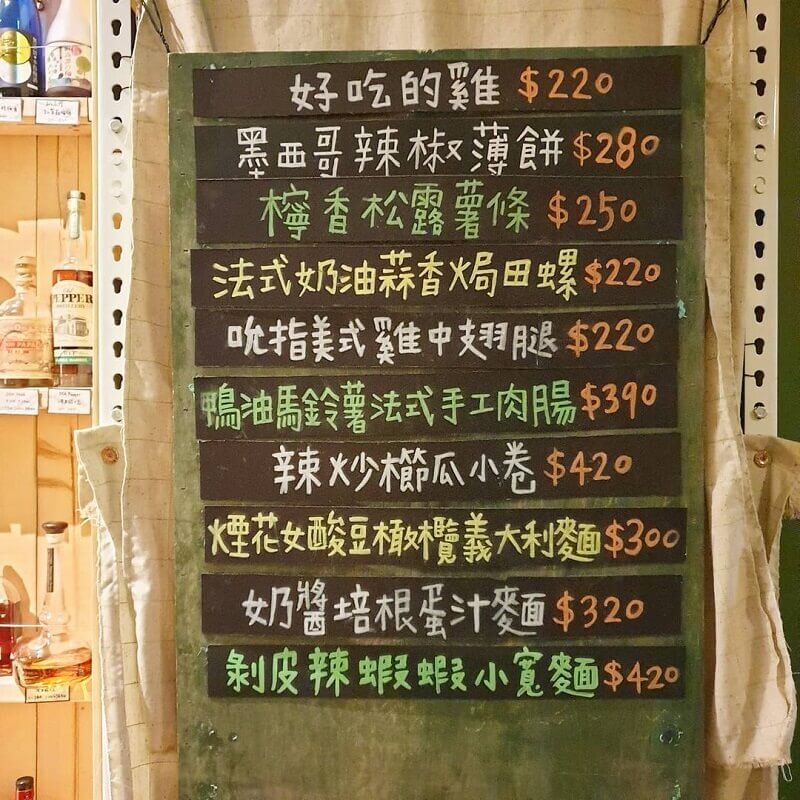 好吃的雞 $220
墨西哥辣椒薄餅 $280
檸香松露薯條 $250
法式奶油蒜香焗田螺 $220
吮指美式雞中翅腿 $220
鴨油馬鈴薯法式手工肉腸 $390
辣炒櫛瓜小卷 $420
煙花女酸豆橄欖義大利麵 $300
奶醬培根蛋汁麵 $320
剝皮辣蝦蝦小寬麵 $420
PEPPER